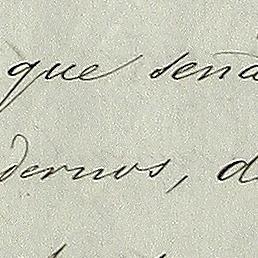 que seña
dernos, d